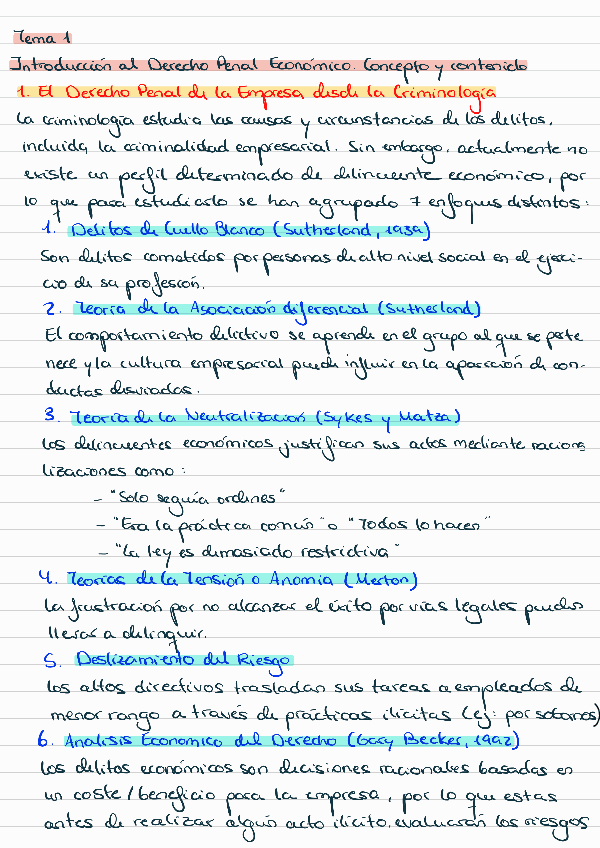 Tema 1
Introducción al Derecho Penal Económico. Concepto y contenido
1. El Derecho Penal de la Empresa desde la Criminología
La criminología estudia las causas y circunstancias de los delitos,
incluida la criminalidad empresarial. Sin embargo, actualmente no
existe un perfil determinado de delincuente económico, por
lo que para estudiarlo se han agrupado 7 enfoques distintos:
1. Delitos de Cuello Blanco (Sutherland, 1939)
Son delitos cometidos por personas de alto nivel social en el ejerci-
cio de su profesión.
2. Teoría de la Asociación diferencial (Sutherland)
El comportamiento delictivo se aprende en el grupo al que se perte
nece y la cultura empresarial puede influir en la aparición de con-
ductas desviadas.
3. Teoría de la Neutralización (Sykes y Matza)
Los delincuentes económicos justifican sus actos mediante raciona
lizaciones como:
- "Solo seguía ordenes"
- "Era la práctica común" o "Todos lo hacen"
- "La ley es demasiado restrictiva"
4. Teorías de la Tensión o Anomia (Merton)
La frustración por no alcanzar el éxito por vías legales pueden
llevar a delinquir.
5. Deslizamiento del Riesgo
Los altos directivos trasladan sus tareas a empleados de
menor rango a través de prácticas ilícitas (ej: por sobornos)
6. Analisis Economico del Derecho (Gary Becker, 1992)
Los delitos económicos son decisiones racionales basadas en
un coste/beneficio para la empresa, por lo que estas
antes de realizar algún acto ilícito, evaluarán los riesgos